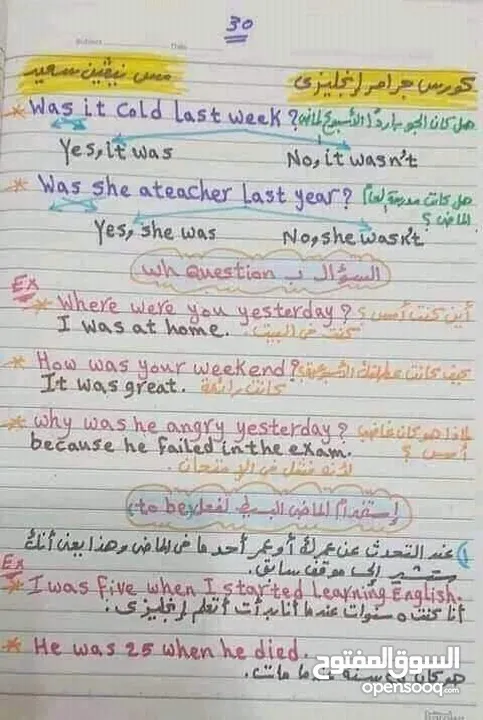 30
كورس جرامر إنجليزى مس نيڤين سعيد
* Was it cold last week? هل كان الجو باردًا الأسبوع الماضى
Yes, it was No, it wasn't
* Was she a teacher last year? هل كانت مدرسة العام
الماضى ؟
Yes, she was No, she wasn't
السؤال ب wh Question
Ex
* Where were you yesterday? أين كنت أمس ؟
I was at home. كنت فى البيت
* How was your weekend? كيف كانت عطلتك
It was great. كانت رائعة
* why was he angry yesterday? لماذا هو كان غاضب
أمس ؟
because he failed in the exam.
لأنه فشل فى الإمتحان.
إستخدام الماضى البسيط لفعل (to be)
1) عند التحدث عن عمرك أو عمر أحد ما فى الماضى وهذا يعنى أنك
ستشير إلى موقف سابق.
Ex
* I was five when I started learning English.
أنا كنت ٥ سنوات عندما أنا بدأت أتعلم إنجليزى.
* He was 25 when he died.
هو كان ٢٥ سنة عندما مات.
السوق المفتوح
opensooq.com